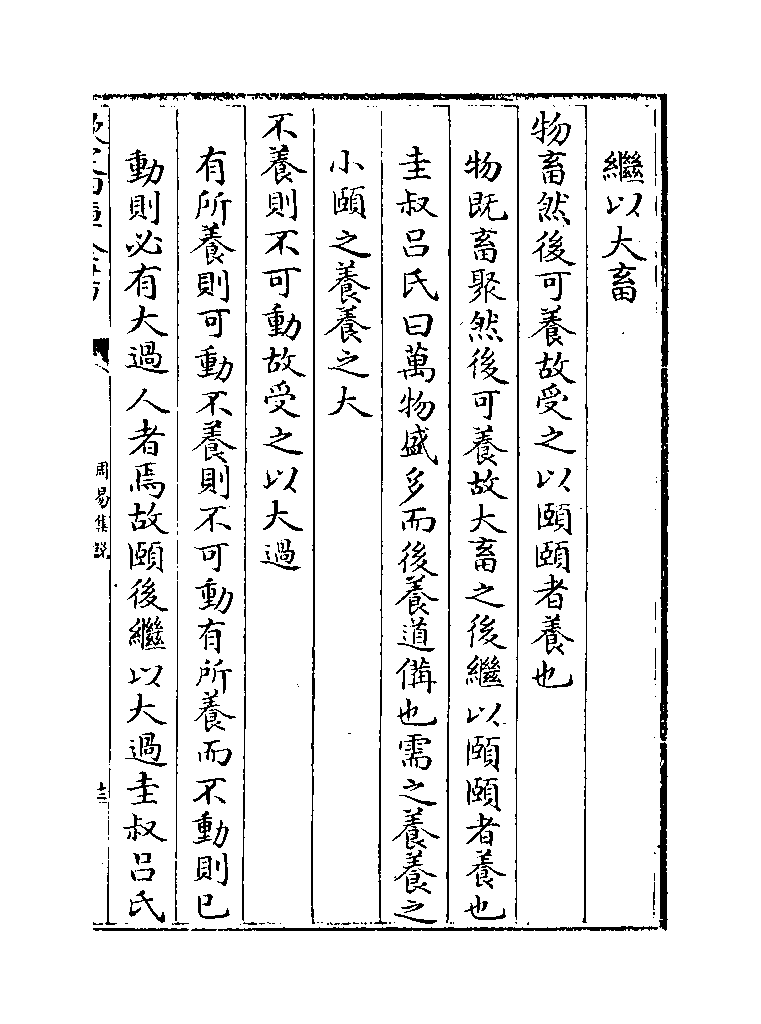 繼以大畜
物畜然後可養故受之以頤頤者養也
物既畜聚然後可養故大畜之後繼以頤頤者養也
圭叔呂氏曰萬物盛多而後養道備也需之養養之
小頤之養養之大
不養則不可動故受之以大過
有所養則可動不養則不可動有所養而不動則已
動則必有大過人者焉故頤後繼以大過圭叔呂氏
周易集說